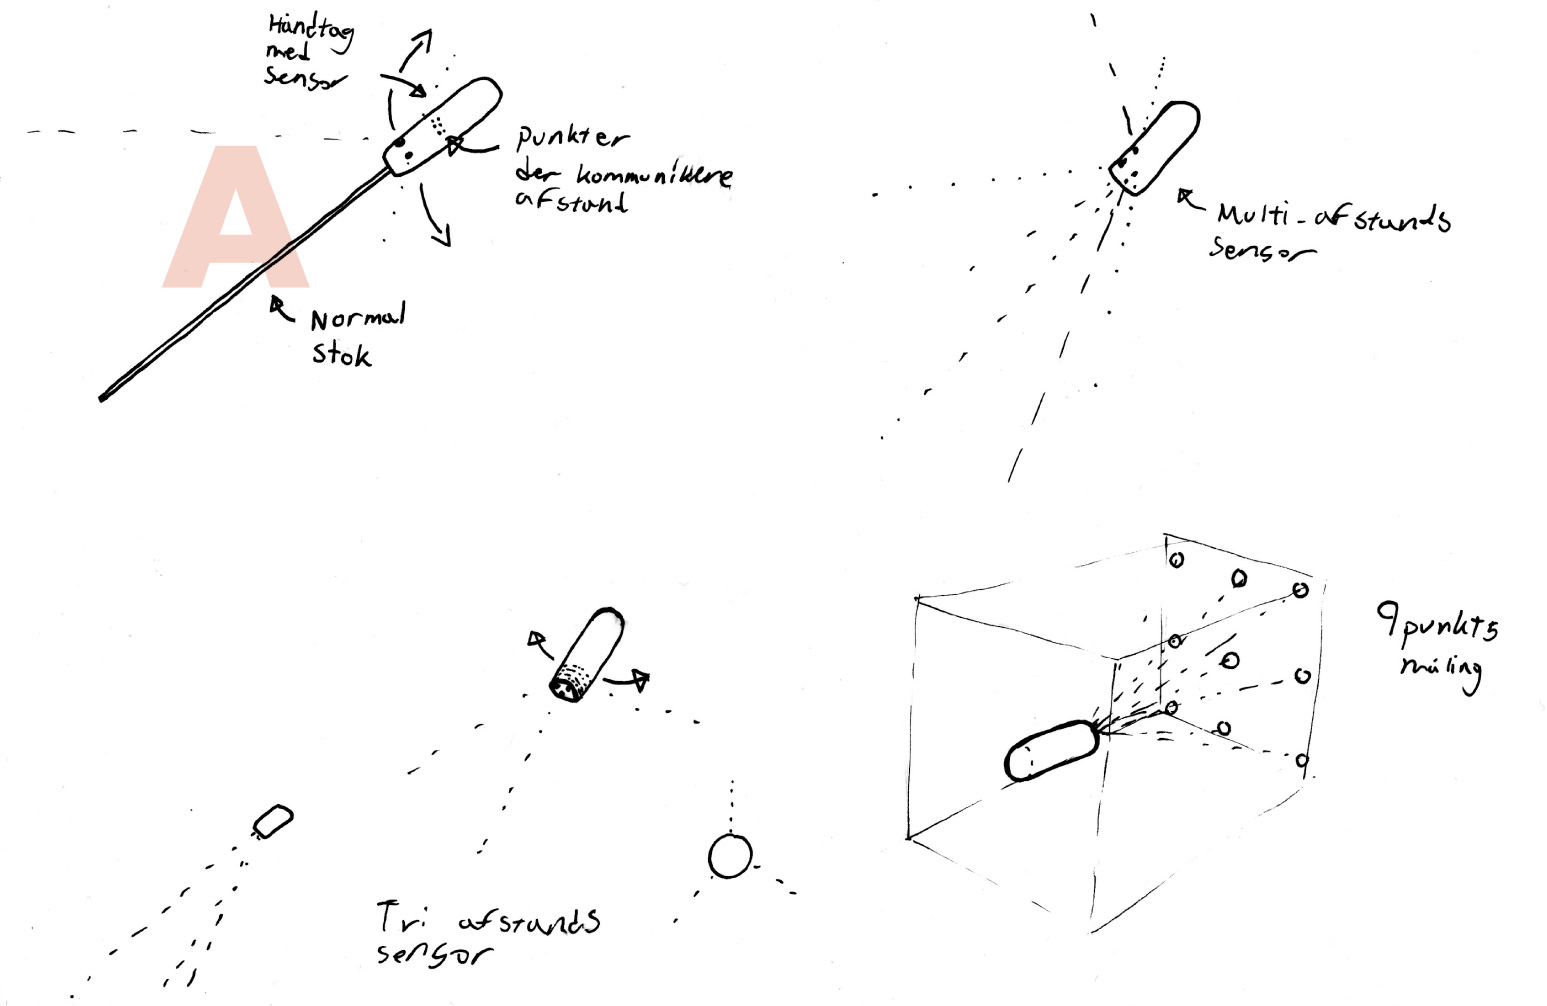 Håndtag
med
sensor
A
punkter
der kommunikere
afstand
Normal
stok
Multi-afstands
sensor
Tri afstands
sensor
9 punkts
måling